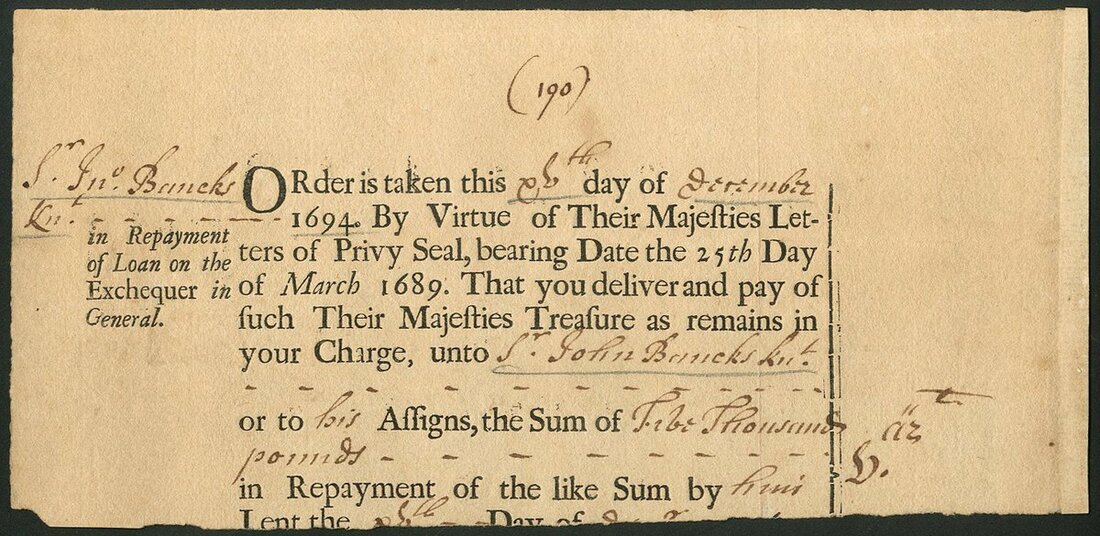 (190)
Sr. Jno. Bancks
Knt.
in Repayment
of Loan on the
Exchequer in
General.
ORder is taken this xvth day of december
1694. By Virtue of Their Majeſties Let-
ters of Privy Seal, bearing Date the 25th Day
of March 1689. That you deliver and pay of
ſuch Their Majeſties Treaſure as remains in
your Charge, unto Sr. John Bancks Knt.
or to his Aſſigns, the Sum of Five Thousand
pounds
in Repayment of the like Sum by him
Lent the xvth Day of